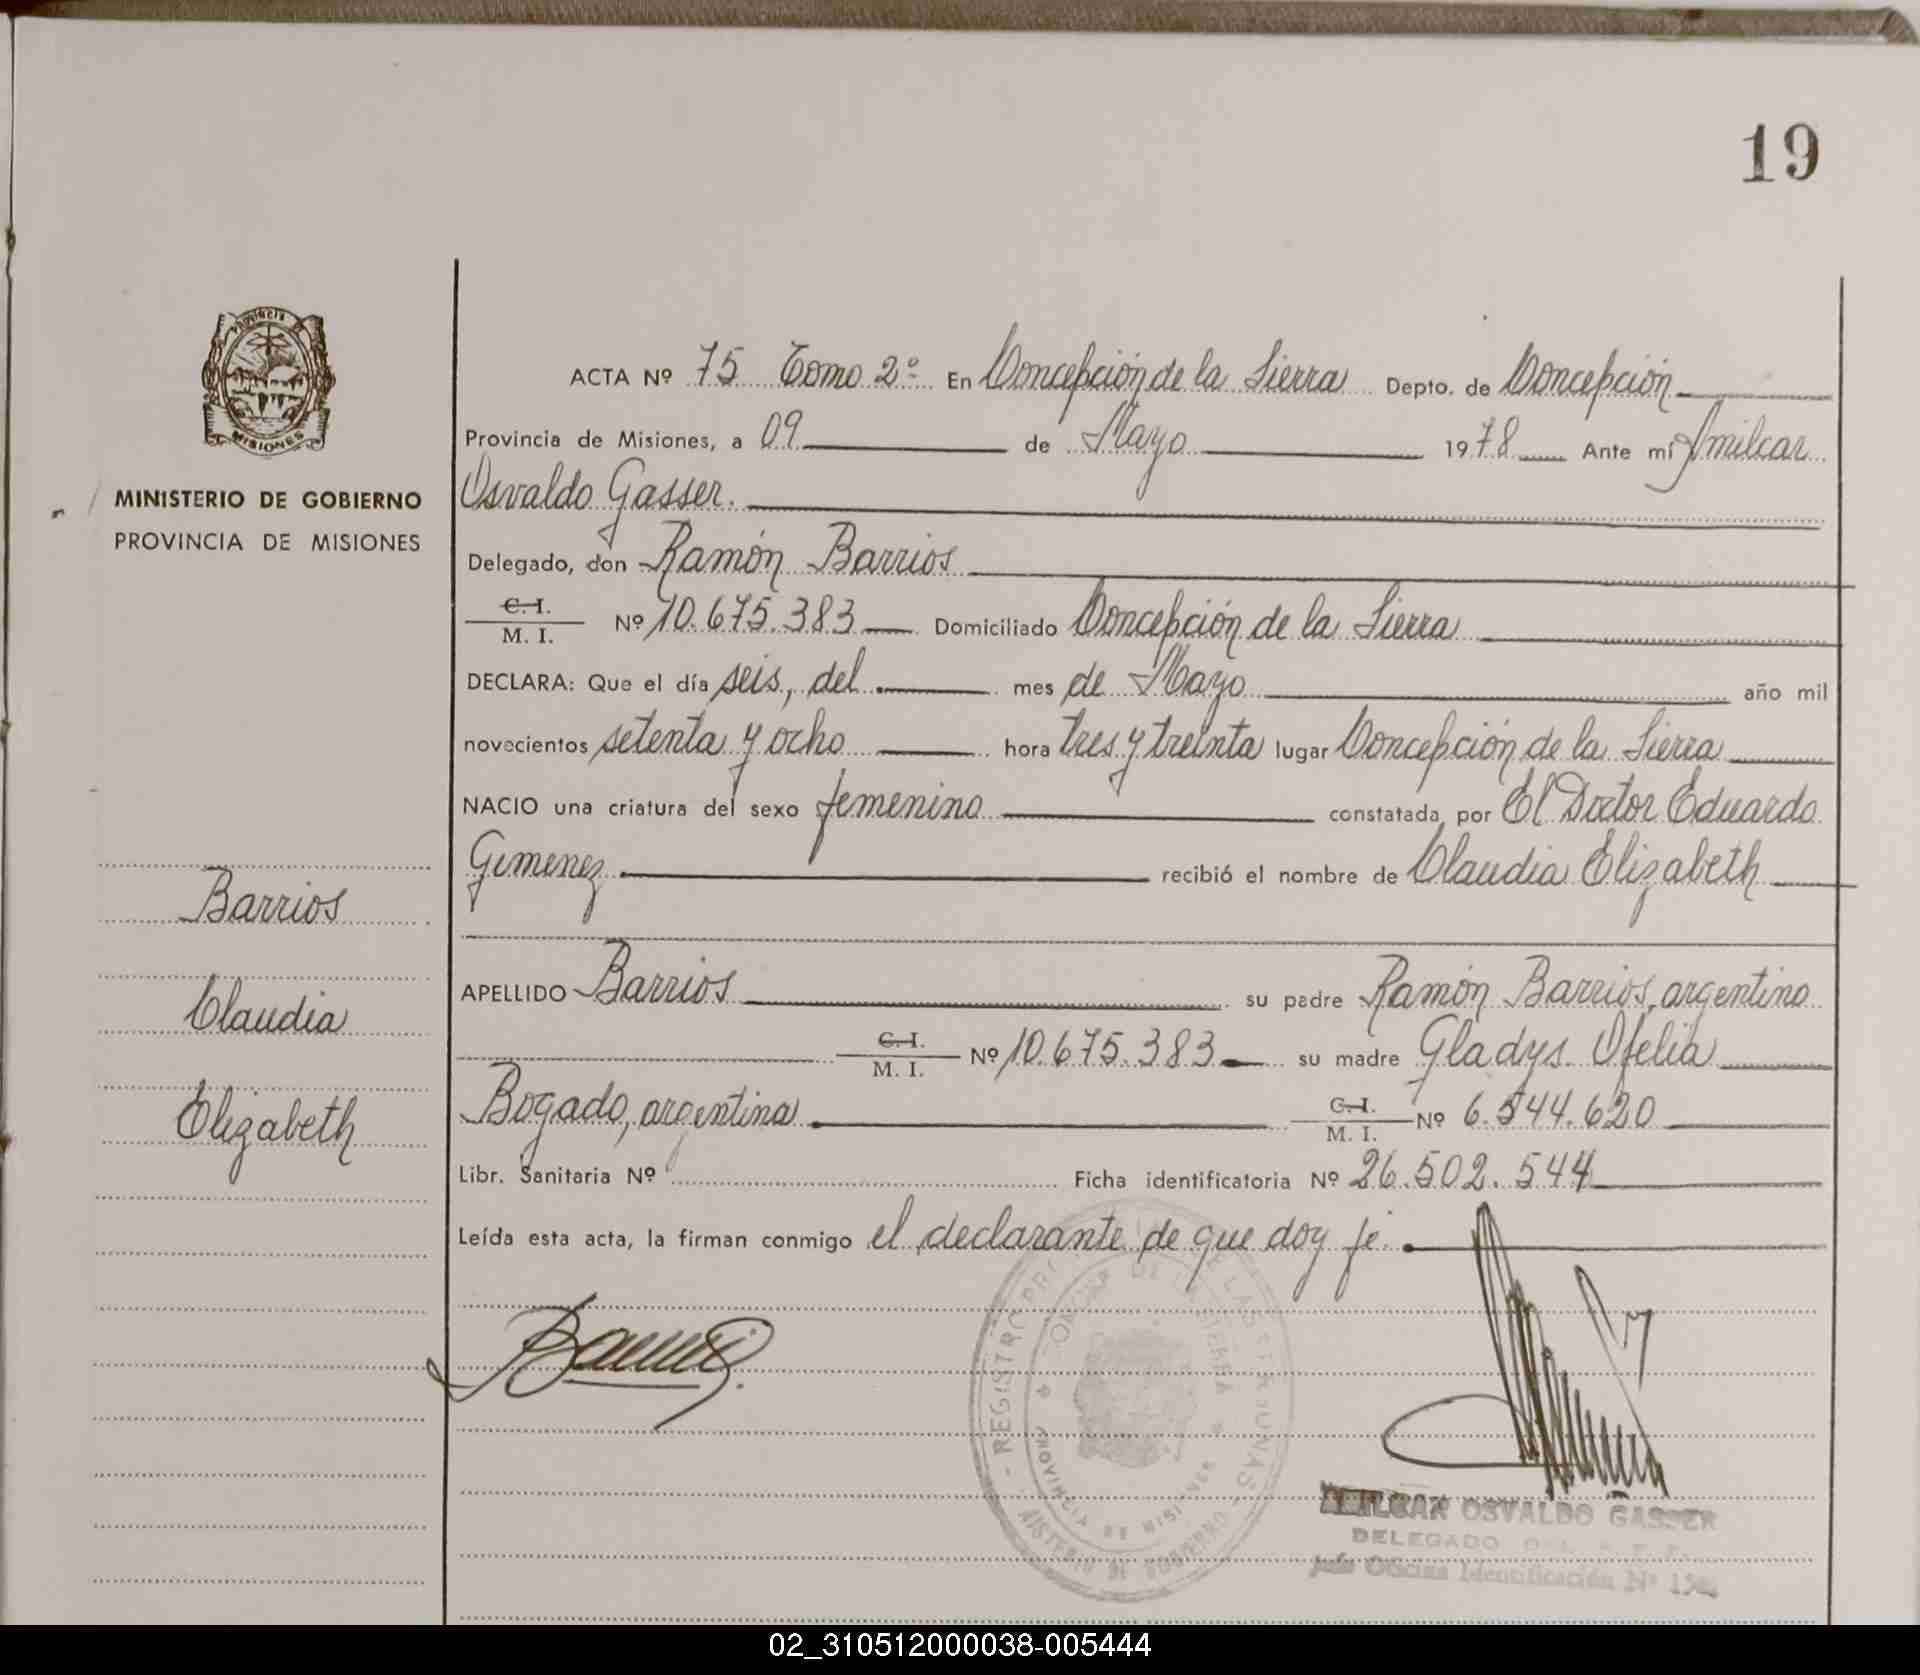 19
Provincia de
MISIONES
MINISTERIO DE GOBIERNO
PROVINCIA DE MISIONES
Barrios
Claudia
Elizabeth
ACTA Nº 75 Tomo 2º En Concepción de la Sierra Depto. de Concepción
Provincia de Misiones, a 09 de Mayo 1978 Ante mí Amilcar
Osvaldo Gasser.
Delegado, don Ramón Barrios
C. I.
M. I. Nº 10.675.383 Domiciliado Concepción de la Sierra
DECLARA: Que el día seis, del mes de Mayo año mil
novecientos setenta y ocho hora tres y treinta lugar Concepción de la Sierra
NACIO una criatura del sexo femenino constatada por El Doctor Eduardo
Gimenez recibió el nombre de Claudia Elizabeth
APELLIDO Barrios su padre Ramón Barrios, argentino
C. I.
M. I. Nº 10.675.383 su madre Gladys Ofelia
Bogado, argentina C. I.
M. I. Nº 6.544.620
Libr. Sanitaria Nº Ficha identificatoria Nº 26.502.544
Leída esta acta, la firman conmigo el declarante de que doy fe.
REGISTRO DE LAS
DE LA SIERRA
PROVINCIA DE MISIONES
MINISTERIO DE GOBIERNO
AMILCAR OSVALDO GASSER
DELEGADO DEL
Jefe Oficina Identificación Nº
02_310512000038-005444